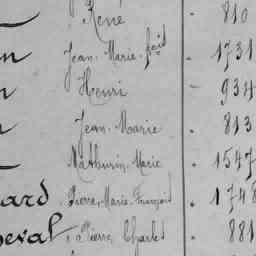 René 810
Jean-Marie-fois 1731
Henri - 934
Jean-Marie . 813
Mathurin-Marie . 1547
ard . Pierre, Marie-François . 1748
eval , Pierre Charles . 881